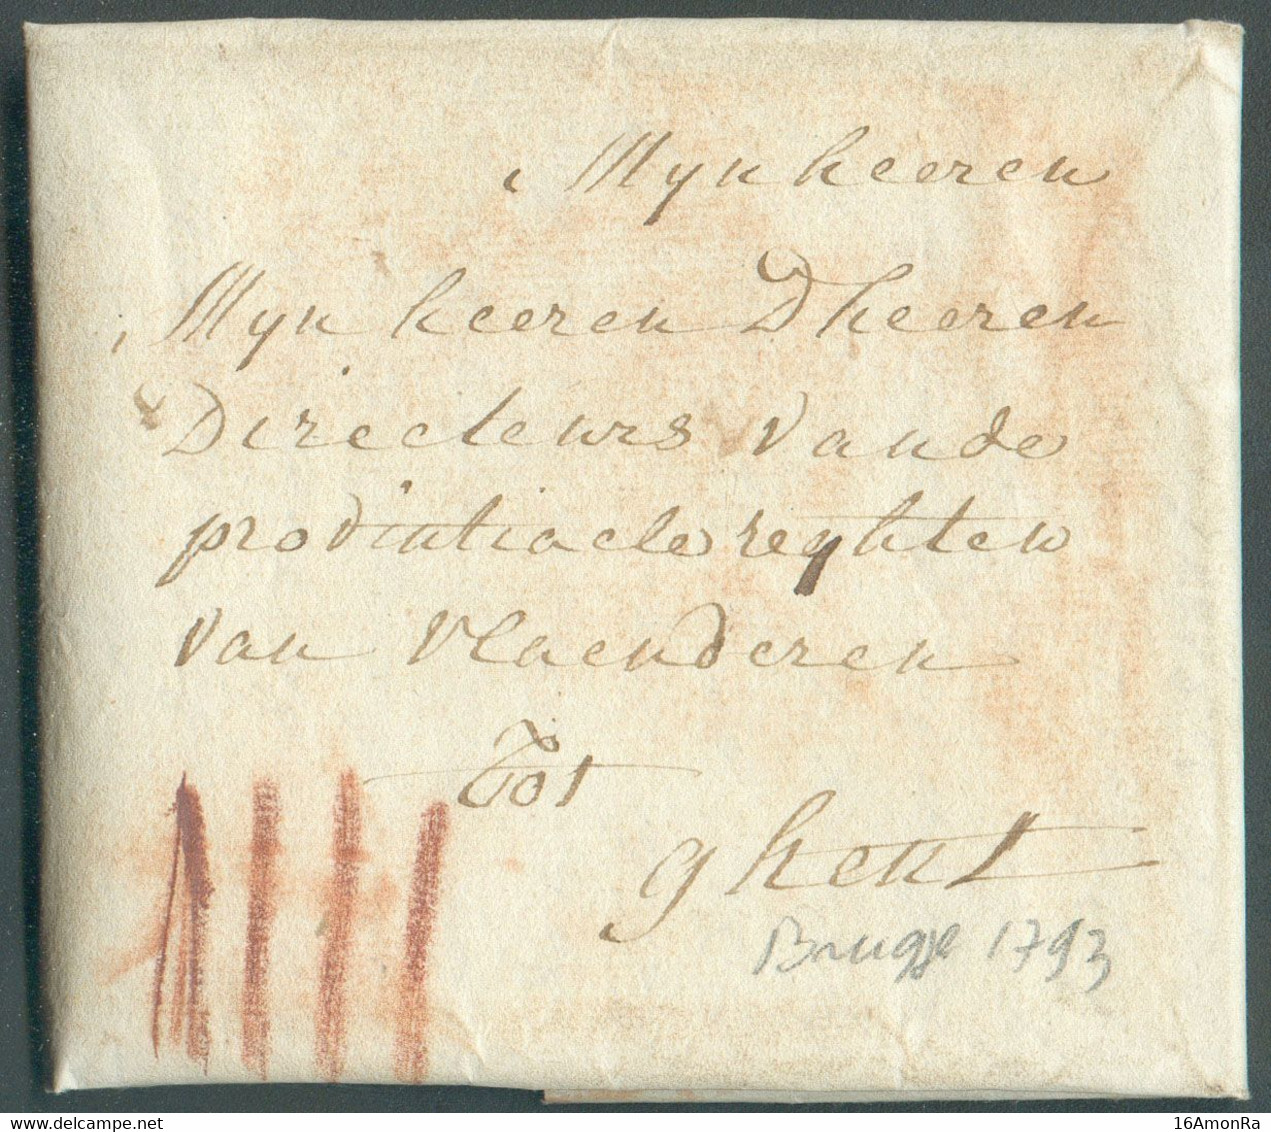 Mijnheeren
Mijnheeren Dheeren
Directeurs van de
provintiaele reghten
van vlaenderen
Tot
ghent
Brugge 1793
www.delcampe.net
16AmonRa